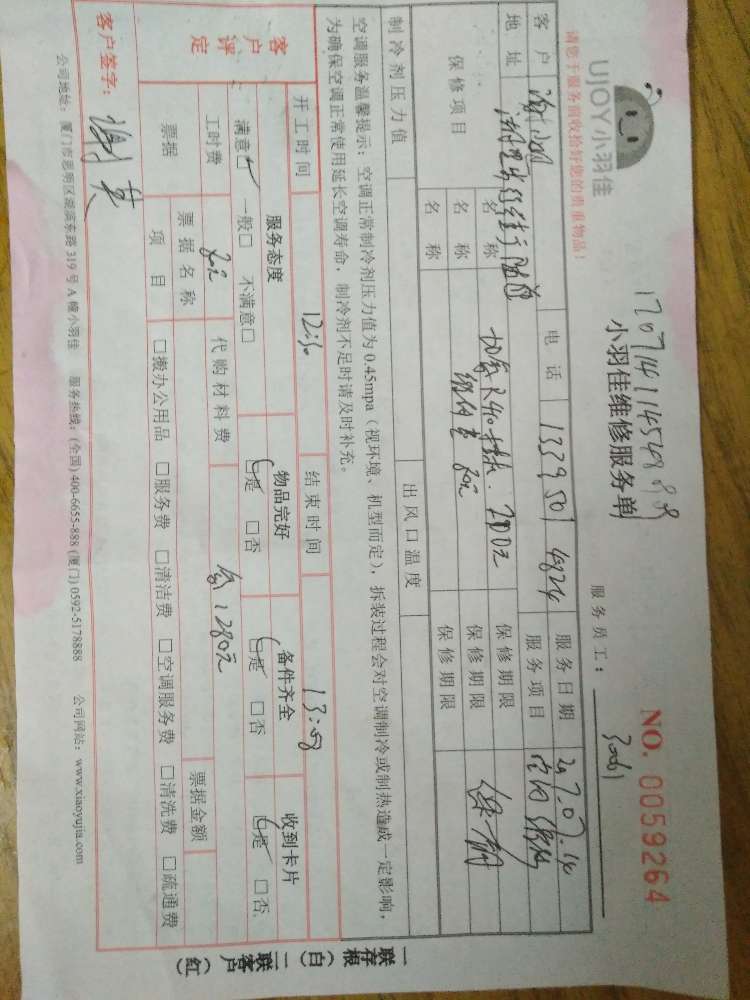 UJOY小羽佳
请您于服务前收拾好您的贵重物品!
小羽佳维修服务单
服务员工:
NO. 0059264
客户
电话 1339501
服务日期
地址
服务项目
保修项目
名称 加氟R410 200元
保修期限
名称
保修期限
名称
保修期限
制冷剂压力值
出风口温度
空调服务温馨提示:空调正常制冷剂压力值为0.45mpa(视环境、机型而定),拆装过程会对空调制冷或制热造成一定影响,
为确保空调正常使用延长空调寿命,制冷剂不足时请及时补充。
开工时间 12:30
结束时间
客户评定
服务态度
物品完好
备件齐全
收到卡片
满意□ 一般□ 不满意□
□是 □否
□是 □否
□是 □否
工时费
代购材料费
280元
票据
票据名称
票据金额
项目
□搬办公用品 □服务费 □清洁费 □空调服务费 □清洗费 □疏通费
客户签字:
公司地址:厦门市思明区湖滨东路319号A幢小羽佳 服务热线:(全国)400-6655-888 (厦门)0592-5178888 公司网站:www.xiaoyujia.com
一联存根(白)二联客户(红)